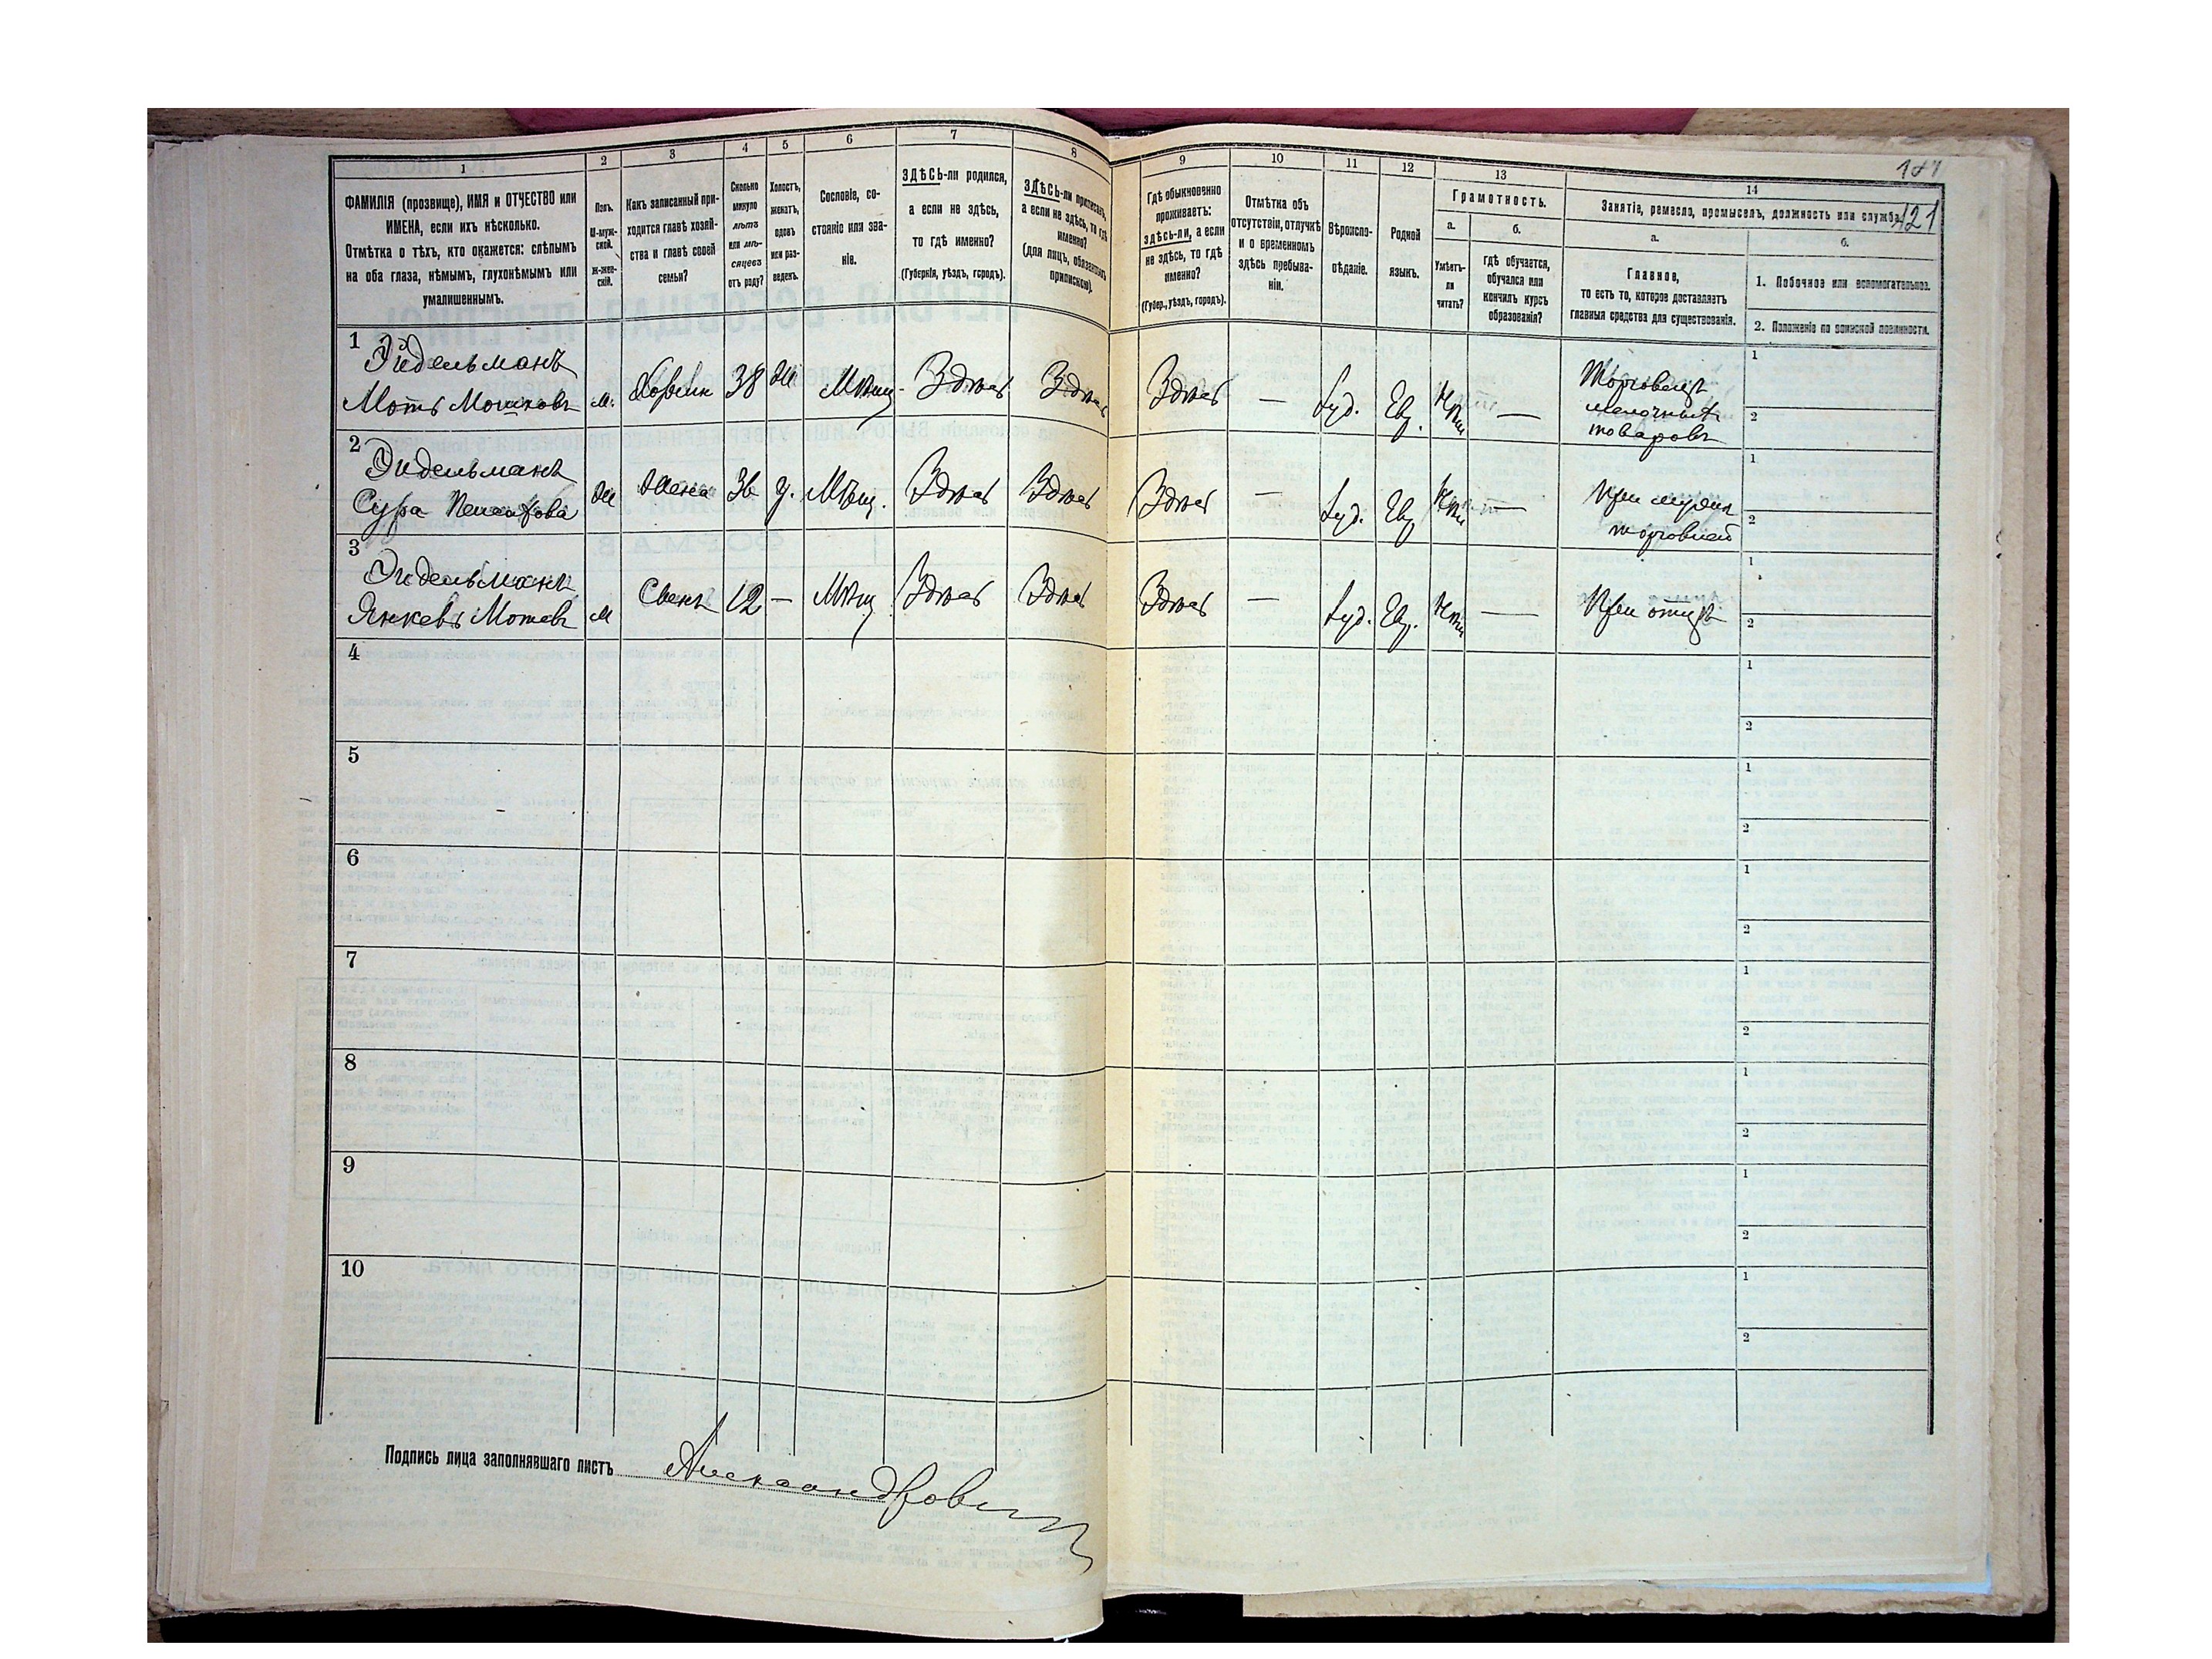 1
2
3
4
5
6
7
8
9
10
11
12
13
14
121
ФАМИЛІЯ (прозвище), ИМЯ и ОТЧЕСТВО или
ИМЕНА, если ихъ нѣсколько.
Отмѣтка о тѣхъ, кто окажется: слѣпымъ
на оба глаза, нѣмымъ, глухонѣмымъ или
умалишеннымъ.
Полъ.
М-муж-
ской.
Ж-жен-
скій.
Какъ записанный при-
ходится главѣ хозяй-
ства и главѣ своей
семьи?
Сколько
минуло
лѣтъ
или мѣ-
сяцевъ
отъ роду?
Холостъ,
женатъ,
вдовъ
или раз-
веденъ.
Сословіе, со-
стояніе или зва-
ніе.
ЗДѢСЬ-ли родился,
а если не здѣсь,
то гдѣ именно?
(Губернія, уѣздъ, городъ).
ЗДѢСЬ-ли приписанъ,
а если не здѣсь, то гдѣ
именно?
(для лицъ, обязанныхъ
припискою).
Гдѣ обыкновенно
проживаетъ:
здѣсь-ли, а если
не здѣсь, то гдѣ
именно?
(Губер., уѣздъ, городъ).
Отмѣтка объ
отсутствіи, отлучкѣ
и о временномъ
здѣсь пребыва-
ніи.
Вѣроиспо-
вѣданіе.
Родной
языкъ.
Грамотность.
а.
б.
Умѣетъ-
ли
читать?
гдѣ обучается,
обучался или
кончилъ курсъ
образованія?
Занятіе, ремесло, промыселъ, должность или служба.
а.
б.
Главное,
то есть то, которое доставляетъ
главныя средства для существованія.
1. Побочное или вспомогательное.
2. Положеніе по воинской повинности.
1 Эйдельманъ
Мотъ Мошковъ м. Хозяинъ 38 ж Мѣщ. Здѣсь Здѣсь Здѣсь — Іуд. Евр. Нѣтъ —
Торговецъ
мелочными
товаровъ
1
2
2 Эйдельманъ
Сура ж Жена 36 з. Мѣщ. Здѣсь Здѣсь Здѣсь — Іуд. Евр. Нѣтъ —
При мужѣ
торговлей
1
2
3 Эйдельманъ
Янкевъ Мотевъ м Сынъ 12 — Мѣщ. Здѣсь Здѣсь Здѣсь — Іуд. Евр. Нѣтъ — При отцѣ
1
2
4
1
2
5
1
2
6
1
2
7
1
2
8
1
2
9
1
2
10
1
2
Подпись лица заполнявшаго листъ Александрович